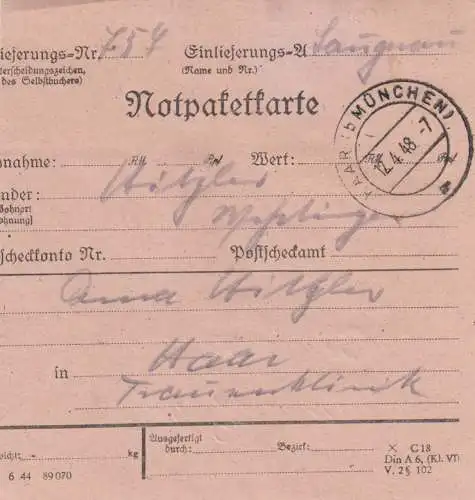 ieferungs-Nr. 757 Einlieferungs-A
terscheidungszeichen, (Name und Nr.)
des Selbstbuchers)
Notpaketkarte
HAAR (b MÜNCHEN)
12.4.48.-7
a
hnahme: RM Rpf Wert: RM Rpf
nder: Hitzler
Wohnort
ohnung)
scheckkonto Nr. Postscheckamt
Anna Hitzler
in Haar
Frauenklinik
wicht: kg
Ausgefertigt
durch: Bezirk:
× C 18
Din A 6, (Kl. VI)
V. 2 § 102
6 44 89070